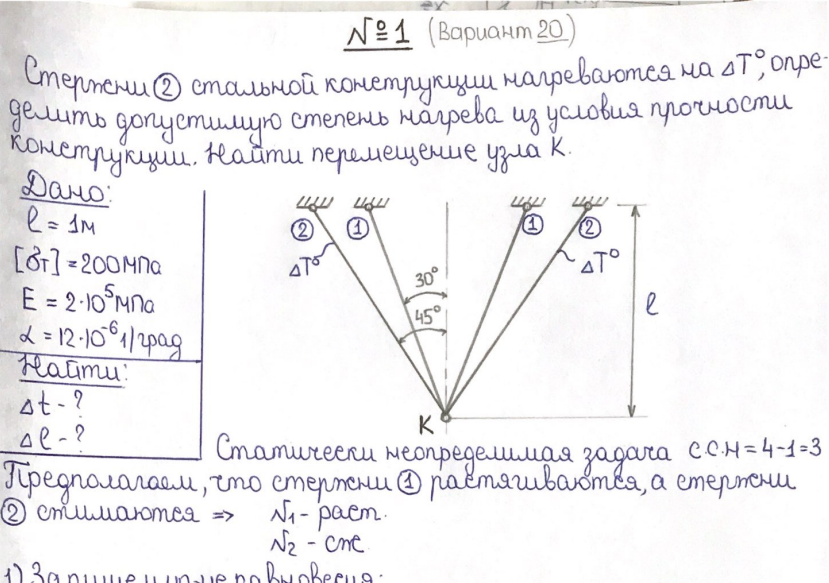 №1 (Вариант 20)
Стержни ② стальной конструкции нагреваются на ΔT°, опре-
делить допустимую степень нагрева из условия прочности
конструкции. Найти перемещение узла К.
Дано:
l = 1м
[σт] = 200МПа
E = 2·10⁵МПа
α = 12·10⁻⁶ 1/град
Найти:
Δt - ?
Δl - ?
② ① ① ②
ΔT° ΔT°
30°
45°
l
К
Статически неопределимая задача С.С.Н = 4-1=3
Предполагаем, что стержни ① растягиваются, а стержни
② стимаются => N₁ - раст.
N₂ - сж
1) Запишем ур-ие равновесия: